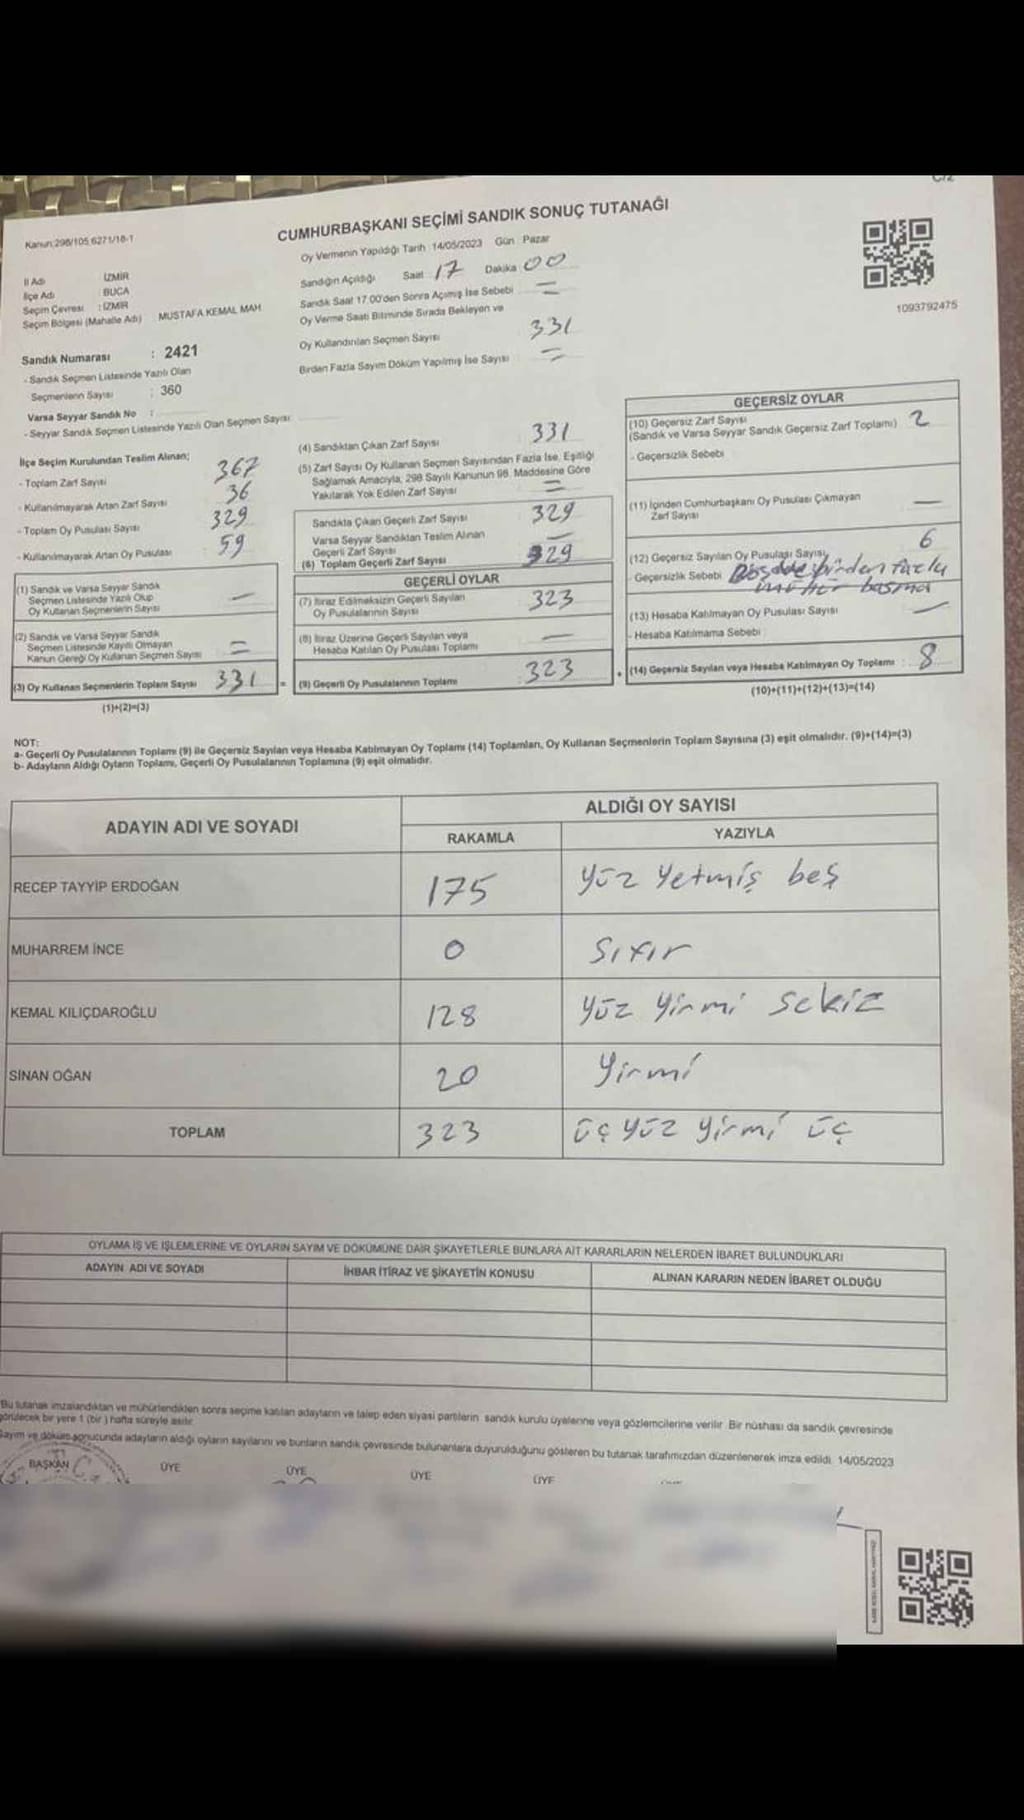 C/2
Kanun;298/105,6271/18-1
CUMHURBAŞKANI SEÇİMİ SANDIK SONUÇ TUTANAĞI
Oy Vermenin Yapıldığı Tarih :14/05/2023 Gün : Pazar
İl Adı : İZMİR
İlçe Adı : BUCA
Seçim Çevresi : İZMİR
Seçim Bölgesi (Mahalle Adı) MUSTAFA KEMAL MAH
Sandığın Açıldığı Saat : 17 Dakika : 00
Sandık Saat 17.00'den Sonra Açılmış İse Sebebi =
Oy Verme Saati Bitiminde Sırada Bekleyen ve
Oy Kullandırılan Seçmen Sayısı 331
Birden Fazla Sayım Döküm Yapılmış İse Sayısı =
1093792475
Sandık Numarası : 2421
- Sandık Seçmen Listesinde Yazılı Olan
Seçmenlerin Sayısı : 360
Varsa Seyyar Sandık No :
- Seyyar Sandık Seçmen Listesinde Yazılı Olan Seçmen Sayısı:
İlçe Seçim Kurulundan Teslim Alınan;
- Toplam Zarf Sayısı 367
- Kullanılmayarak Artan Zarf Sayısı 36
- Toplam Oy Pusulası Sayısı 329
- Kullanılmayarak Artan Oy Pusulası 59
(1) Sandık ve Varsa Seyyar Sandık
Seçmen Listesinde Yazılı Olup
Oy Kullanan Seçmenlerin Sayısı —
(2) Sandık ve Varsa Seyyar Sandık
Seçmen Listesinde Kayıtlı Olmayan
Kanun Gereği Oy Kullanan Seçmen Sayısı =
(3) Oy Kullanan Seçmenlerin Toplam Sayısı 331 =
(1)+(2)=(3)
(4) Sandıktan Çıkan Zarf Sayısı 331
(5) Zarf Sayısı Oy Kullanan Seçmen Sayısından Fazla İse, Eşitliği
Sağlamak Amacıyla, 298 Sayılı Kanunun 98. Maddesine Göre
Yakılarak Yok Edilen Zarf Sayısı =
Sandıkta Çıkan Geçerli Zarf Sayısı 329
Varsa Seyyar Sandıktan Teslim Alınan
Geçerli Zarf Sayısı —
(6) Toplam Geçerli Zarf Sayısı 329
GEÇERLİ OYLAR
(7) İtiraz Edilmeksizin Geçerli Sayılan
Oy Pusulalarının Sayısı 323
(8) İtiraz Üzerine Geçerli Sayılan veya
Hesaba Katılan Oy Pusulası Toplamı —
(9) Geçerli Oy Pusulalarının Toplamı : 323 +
GEÇERSİZ OYLAR
(10) Geçersiz Zarf Sayısı
(Sandık ve Varsa Seyyar Sandık Geçersiz Zarf Toplamı) 2
- Geçersizlik Sebebi
(11) İçinden Cumhurbaşkanı Oy Pusulası Çıkmayan
Zarf Sayısı —
(12) Geçersiz Sayılan Oy Pusulası Sayısı 6
- Geçersizlik Sebebi birden fazla
mühür basma
(13) Hesaba Katılmayan Oy Pusulası Sayısı —
- Hesaba Katılmama Sebebi :
(14) Geçersiz Sayılan veya Hesaba Katılmayan Oy Toplamı : 8
(10)+(11)+(12)+(13)=(14)
NOT:
a- Geçerli Oy Pusulalarının Toplamı (9) ile Geçersiz Sayılan veya Hesaba Katılmayan Oy Toplamı (14) Toplamları, Oy Kullanan Seçmenlerin Toplam Sayısına (3) eşit olmalıdır. (9)+(14)=(3)
b- Adayların Aldığı Oyların Toplamı, Geçerli Oy Pusulalarının Toplamına (9) eşit olmalıdır.
ADAYIN ADI VE SOYADI
ALDIĞI OY SAYISI
RAKAMLA YAZIYLA
RECEP TAYYİP ERDOĞAN 175 Yüz Yetmiş beş
MUHARREM İNCE 0 Sıfır
KEMAL KILIÇDAROĞLU 128 Yüz Yirmi Sekiz
SİNAN OĞAN 20 Yirmi
TOPLAM 323 üç yüz yirmi üç
OYLAMA İŞ VE İŞLEMLERİNE VE OYLARIN SAYIM VE DÖKÜMÜNE DAİR ŞİKAYETLERLE BUNLARA AİT KARARLARIN NELERDEN İBARET BULUNDUKLARI
ADAYIN ADI VE SOYADI İHBAR İTİRAZ VE ŞİKAYETİN KONUSU ALINAN KARARIN NEDEN İBARET OLDUĞU
Bu tutanak imzalandıktan ve mühürlendikten sonra seçime katılan adayların ve talep eden siyasi partilerin sandık kurulu üyelerine veya gözlemcilerine verilir. Bir nüshası da sandık çevresinde
görülecek bir yere 1 (bir) hafta süreyle asılır.
Sayım ve döküm sonucunda adayların aldığı oyların sayılarını ve bunların sandık çevresinde bulunanlara duyurulduğunu gösteren bu tutanak tarafımızdan düzenlenerek imza edildi. 14/05/2023
BAŞKAN ÜYE ÜYE ÜYE ÜYE